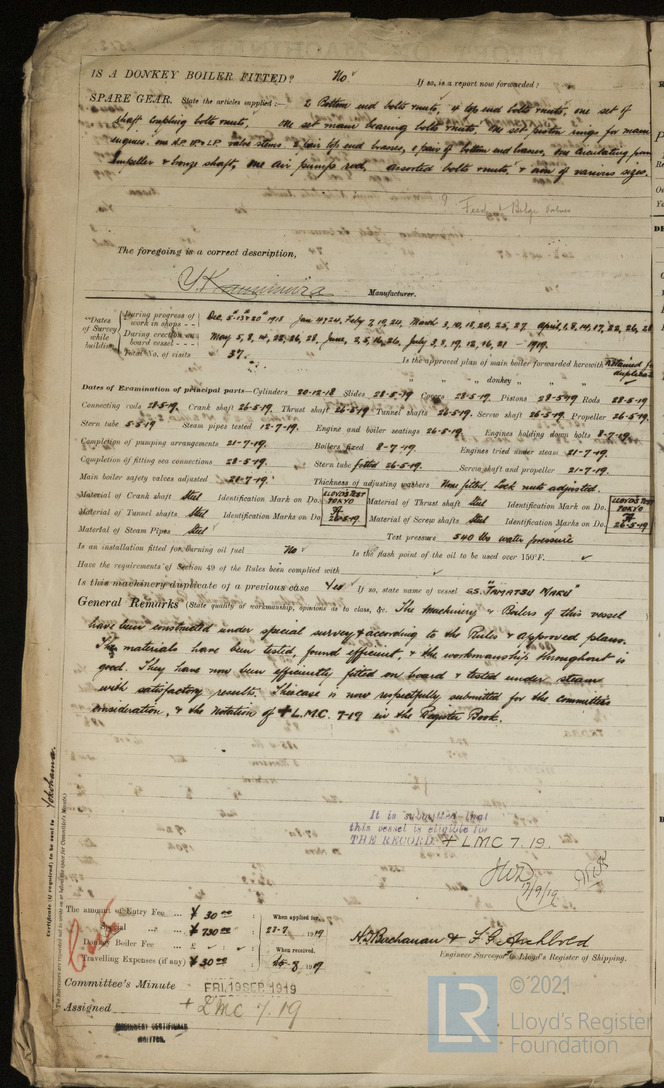 IS A DONKEY BOILER FITTED? No If so, is a report now forwarded?
SPARE GEAR. State the articles supplied:— 2 Bottom end bolts & nuts, 4 top end bolts & nuts, one set of
shaft coupling bolts & nuts, one set main bearing bolts & nuts, one set piston rings for main
engines, one H.P. & L.P. valve stems, 2 pair top end brasses, 1 pair of bottom end brasses, one circulating pump
impeller & bronze shaft, one air pump rod, assorted bolts & nuts, & iron of various sizes.
Feed & Bilge valves
The foregoing is a correct description,
Manufacturer.
Dates of Survey while building
During progress of work in shops -- Dec. 5-13 & 20 1918 Jan 4 & 24, Feby 7, 19, 24, March 3, 10, 18, 20, 25, 27 April, 1, 8, 14, 17, 22, 26, 28
During erection on board vessel --- May 5, 8, 14, 22, 26, 28, June, 2, 5, 16, 26, July 3, 8, 19, 12, 16, 21 — 1919.
Total No. of visits 37.
Is the approved plan of main boiler forwarded herewith
" " " donkey " " "
Dates of Examination of principal parts—Cylinders 20-12-18 Slides 28-5-19 Covers 28-5-19 Pistons 28-5-19 Rods 28-5-19
Connecting rods 28-5-19. Crank shaft 26-5-19. Thrust shaft 26-5-19 Tunnel shafts 26-5-19. Screw shaft 26-5-19. Propeller 26-5-19.
Stern tube 5-5-19 Steam pipes tested 12-7-19. Engine and boiler seatings 26-5-19. Engines holding down bolts 8-7-19.
Completion of pumping arrangements 21-7-19. Boilers fixed 8-7-19. Engines tried under steam 21-7-19.
Completion of fitting sea connections 28-5-19. Stern tube fitted 26-5-19. Screw shaft and propeller 21-7-19.
Main boiler safety valves adjusted 21-7-19. Thickness of adjusting washers None fitted. Lock nuts adjusted.
Material of Crank shaft Steel Identification Mark on Do. LLOYD'S TEST TOKYO 26-5-19 Material of Thrust shaft Steel Identification Mark on Do. LLOYD'S TEST TOKYO 26-5-19
Material of Tunnel shafts Steel Identification Marks on Do. Material of Screw shafts Steel Identification Marks on Do.
Material of Steam Pipes Steel Test pressure 540 lbs water pressure
Is an installation fitted for burning oil fuel No Is the flash point of the oil to be used over 150°F.
Have the requirements of Section 49 of the Rules been complied with
Is this machinery duplicate of a previous case Yes If so, state name of vessel SS. "TAMATSU MARU"
General Remarks (State quality of workmanship, opinions as to class, &c. The Machinery & Boilers of this vessel
have been constructed under special survey & according to the Rules & approved plans.
The materials have been tested, found efficient, & the workmanship throughout is
good. They have now been efficiently fitted on board & tested under steam
with satisfactory results. This case is now respectfully submitted for the committee's
consideration, & the notation of + L.M.C. 7-19 in the Register Book.
Certificate (if required) to be sent to Yokohama.
It is submitted that
this vessel is eligible for
THE RECORD + LMC 7.19.
17/9/19
The amount of Entry Fee ... ¥ 30 00 : When applied for,
Special ... ¥ 730 00 : 23-7 1919
Donkey Boiler Fee ... £ : : When received,
Travelling Expenses (if any) ¥ 30 00 : 8 1919
N. Buchanan & F. G. Archbold
Engineer Surveyor to Lloyd's Register of Shipping.
Committee's Minute FRI. 19 SEP. 1919
Assigned + LMC 7.19
MACHINERY CERTIFICATE
WRITTEN.
LR © 2021
Lloyd's Register
Foundation